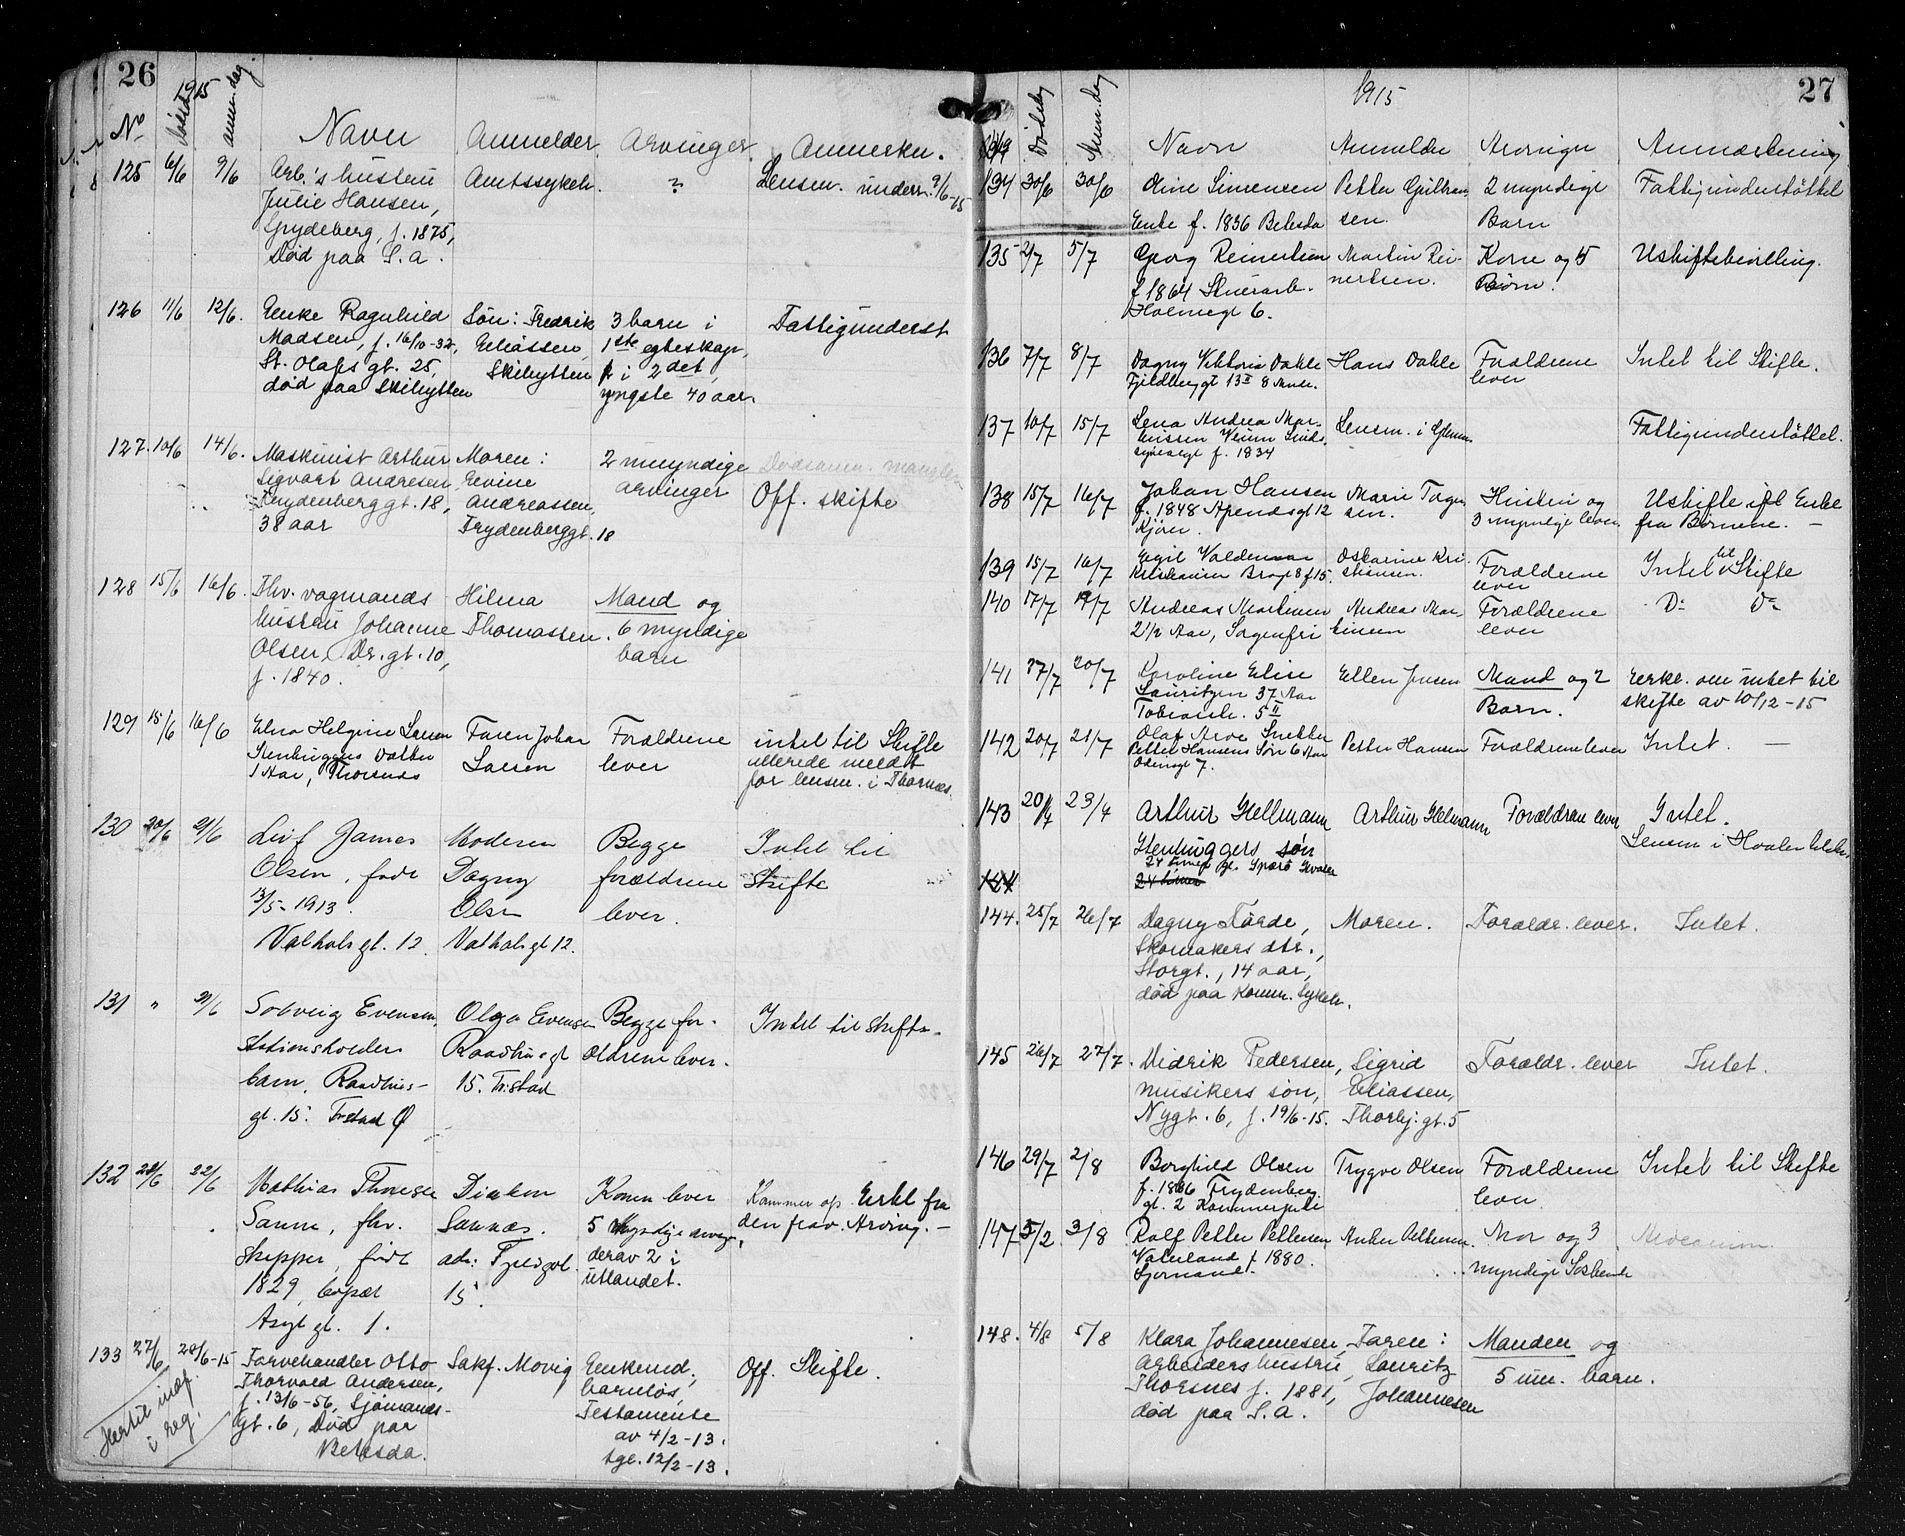 26
1915
No
Dødsd.
anm. dag.
Navn
Anmelder.
Arvinger.
Anmerkn.
125 6/6 9/6 Arb.'s hustru Amtssykeh. " Lensm. underr. 9/6-15
Julie Hansen,
Grydeberg, f. 1875,
Død paa S.a.
126 11/6 12/6. Enke Ragnhild Søn: Fredrik 3 barn i Fattigunderst
Madsen, f. 16/10-32, Eliassen, 1ste egteskap,
St. Olafs gt. 25, Skihytten i 2det,
død paa Skihytten yngste 40 aar.
127. 10/6 14/6. Maskinist Arthur Moren: 2 umyndige Dødsanm. mangler
Sigvart Andresen, Evine arvinger Off. skifte
Frydenberggt. 18, Andreassen,
38 aar Frydenberggt. 18
128 15/6 16/6. Fhv. vogmands Hilma Mand og
hustru Johanne Thomassen. 6 myndige
Olsen, Dr. gt. 10, barn
f. 1840.
129 15/6 16/6 Elna Helgine Larsen Faren Johan Forældrene intet til Skifte
Stenhuggers Datter Larsen lever allerede meldt
1 Aar, Thorsnæs for lensm. i Thorsnæs.
130 20/6 21/6 Leif James Moderen Begge Intet til
Olsen, født Dagny forældrene Skifte
3/5-1913. Olsen lever.
Valhals gt. 12. Valhals gt 12.
131 " 21/6 Solveig Evensen, Olga Evensen Begge for- Intet til skifte.
Stationsholders Raadhusgt ældrene lever.
barn, Raadhus- 15. Fr.stad
gt. 15. Fr.stad Ø
132 21/6 22/6 Mathias Thoresen Diakon Konen lever
Sanne, fhv. Sannæs. 5 Myndige arving. den frav. Arving. —
skipper, født adr: derav 2 i
1829, bopæl 15. utlandet.
Asyl gt. 1.
133 27/6 28/6-15 Farvehandler Otto Sakf. Movig Enkemd, Off. Skifte.
Thorvald Andersen, barnløs,
f. 13/6-56, Sjømands- Testamente
gt. 6, Død paa av 4/2-13.
Betesda. tgl. 12/2-13.
i reg.
27
1915
Dødsdag
Anm. dag
Navn Anmelder Arvinger Anmærkning
134 30/6 30/6 Oline Simensen Petter 2 myndige Fattigunderstøttet
Enke f. 1836 Betesda sen. Barn
135 2/7 5/7 Georg Reinertsen Martin Rei- Kone og 5 Uskiftebevilling.
f 1864 Stuerarb. nertsen. Børn.
Holmegt 6.
136 7/7 8/7 Dagny Viktoria Dahle Hans Dahle Forældrene Intet til Skifte.
Fjeldberggt 13 II 8 Mndr. lever
137 10/7 15/7 Lena Andrea Mar- Lensm. i Glemm. Fattigunderstøttet.
f. 1834
138 15/7 16/7 Johan Hansen Marie Hustru og Uskifte Enke
f. 1848 Arendsgt 12 sen. 3 myndige lever. fra Børnene. —
Kjøren
139 15/7 16/7 Egil Valdemar Oskarine Kri- Forældrene Intet til Skifte
Kristiansen Bragt 8 f 15. stiansen. lever
140 17/7 19/7 Andreas Martinsen Andreas Mar- Forældrene Do Do
2 1/2 Aar, Sorgenfri tinsen lever
141 17/7 20/7 Karoline Elise Ellen Jensen Mand og 2 Erkl. om intet til
Lauritzen 37 Aar Barn. skifte av 10/12-15
5 II
142 20/7 21/7 Olaf Arve Snekker Petter Hansen Forældrene lever Intet. —
Petter Hansens Søn 6 Aar
Odinsgt 7.
143 20/4 23/4 Arthur Hellmann Arthur Helmann Forældrene lever Intet.
Stenhuggers søn Lensm i Hvaler
24 timer gl. Spærø Hvaler
144
24 timer
144. 25/7 26/7 Dagny Førde, Moren. Forældr. lever. Intet.
Skomakers dtr.,
Storgt., 14 aar,
død paa Komm. sykeh.
145 26/7 27/7. Didrik Pedersen, Sigrid Forældr. lever Intet.
musikers søn, Eliassen,
Nygt. 6, f. 19/6-15. Thorbj. gt. 5
146 29/7 2/8 Borghild Olsen Trygve Olsen Forældrene Intet til Skifte
f. 1886 Frydenberg lever.
gt. 2
147 5/2 3/8 Rolf Petter Pettersen Anker Pettersen. Mor og 3
Vaterland f 1880. myndige Søskende
Sjømand.
148. 4/8 5/8 Klara Johannesen, Faren: Manden og
Arbeiders hustru, Lauritz 5 um. barn.
Thorsnes f. 1881, Johannesen
død paa S.a.